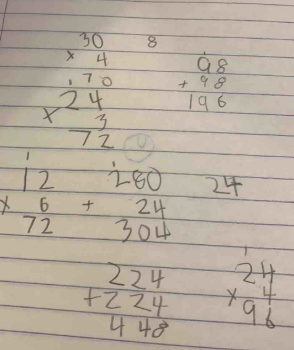 30 8
× 4
1 70
24
× 3
72
1
98
+ 98
196
1
12
× 6
72
1
280
+ 24
304
24
224
+224
448
1
24
× 4
96